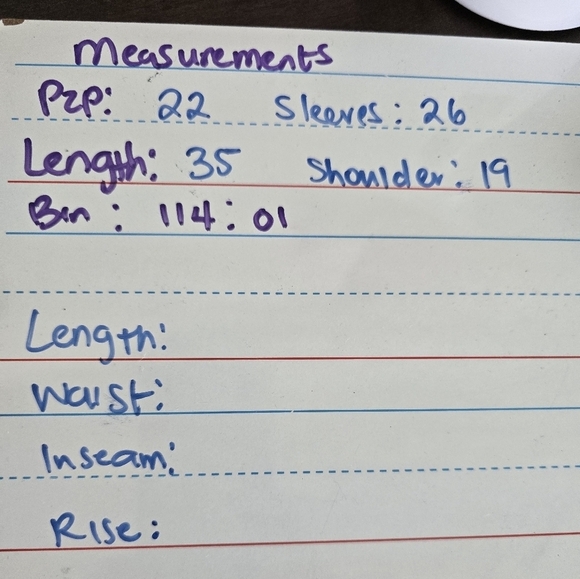 Measurements
P2P: 22 Sleeves: 26
Length: 35 Shoulder: 19
Bin: 114:01
Length:
Waist:
Inseam:
Rise: